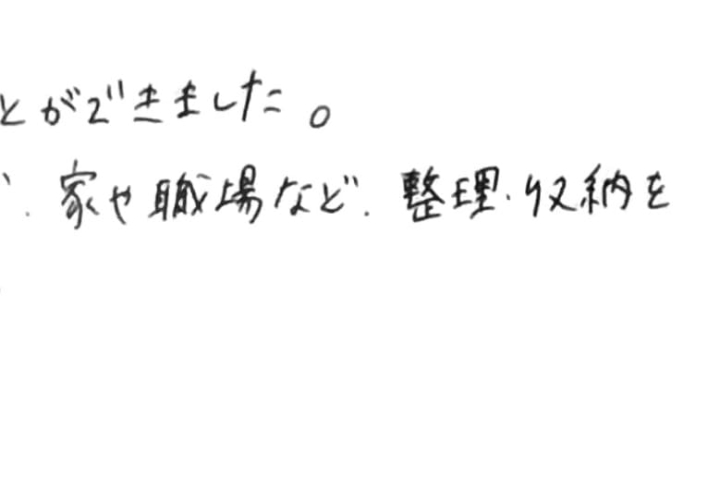 とができました。
、家や職場など、整理・収納を